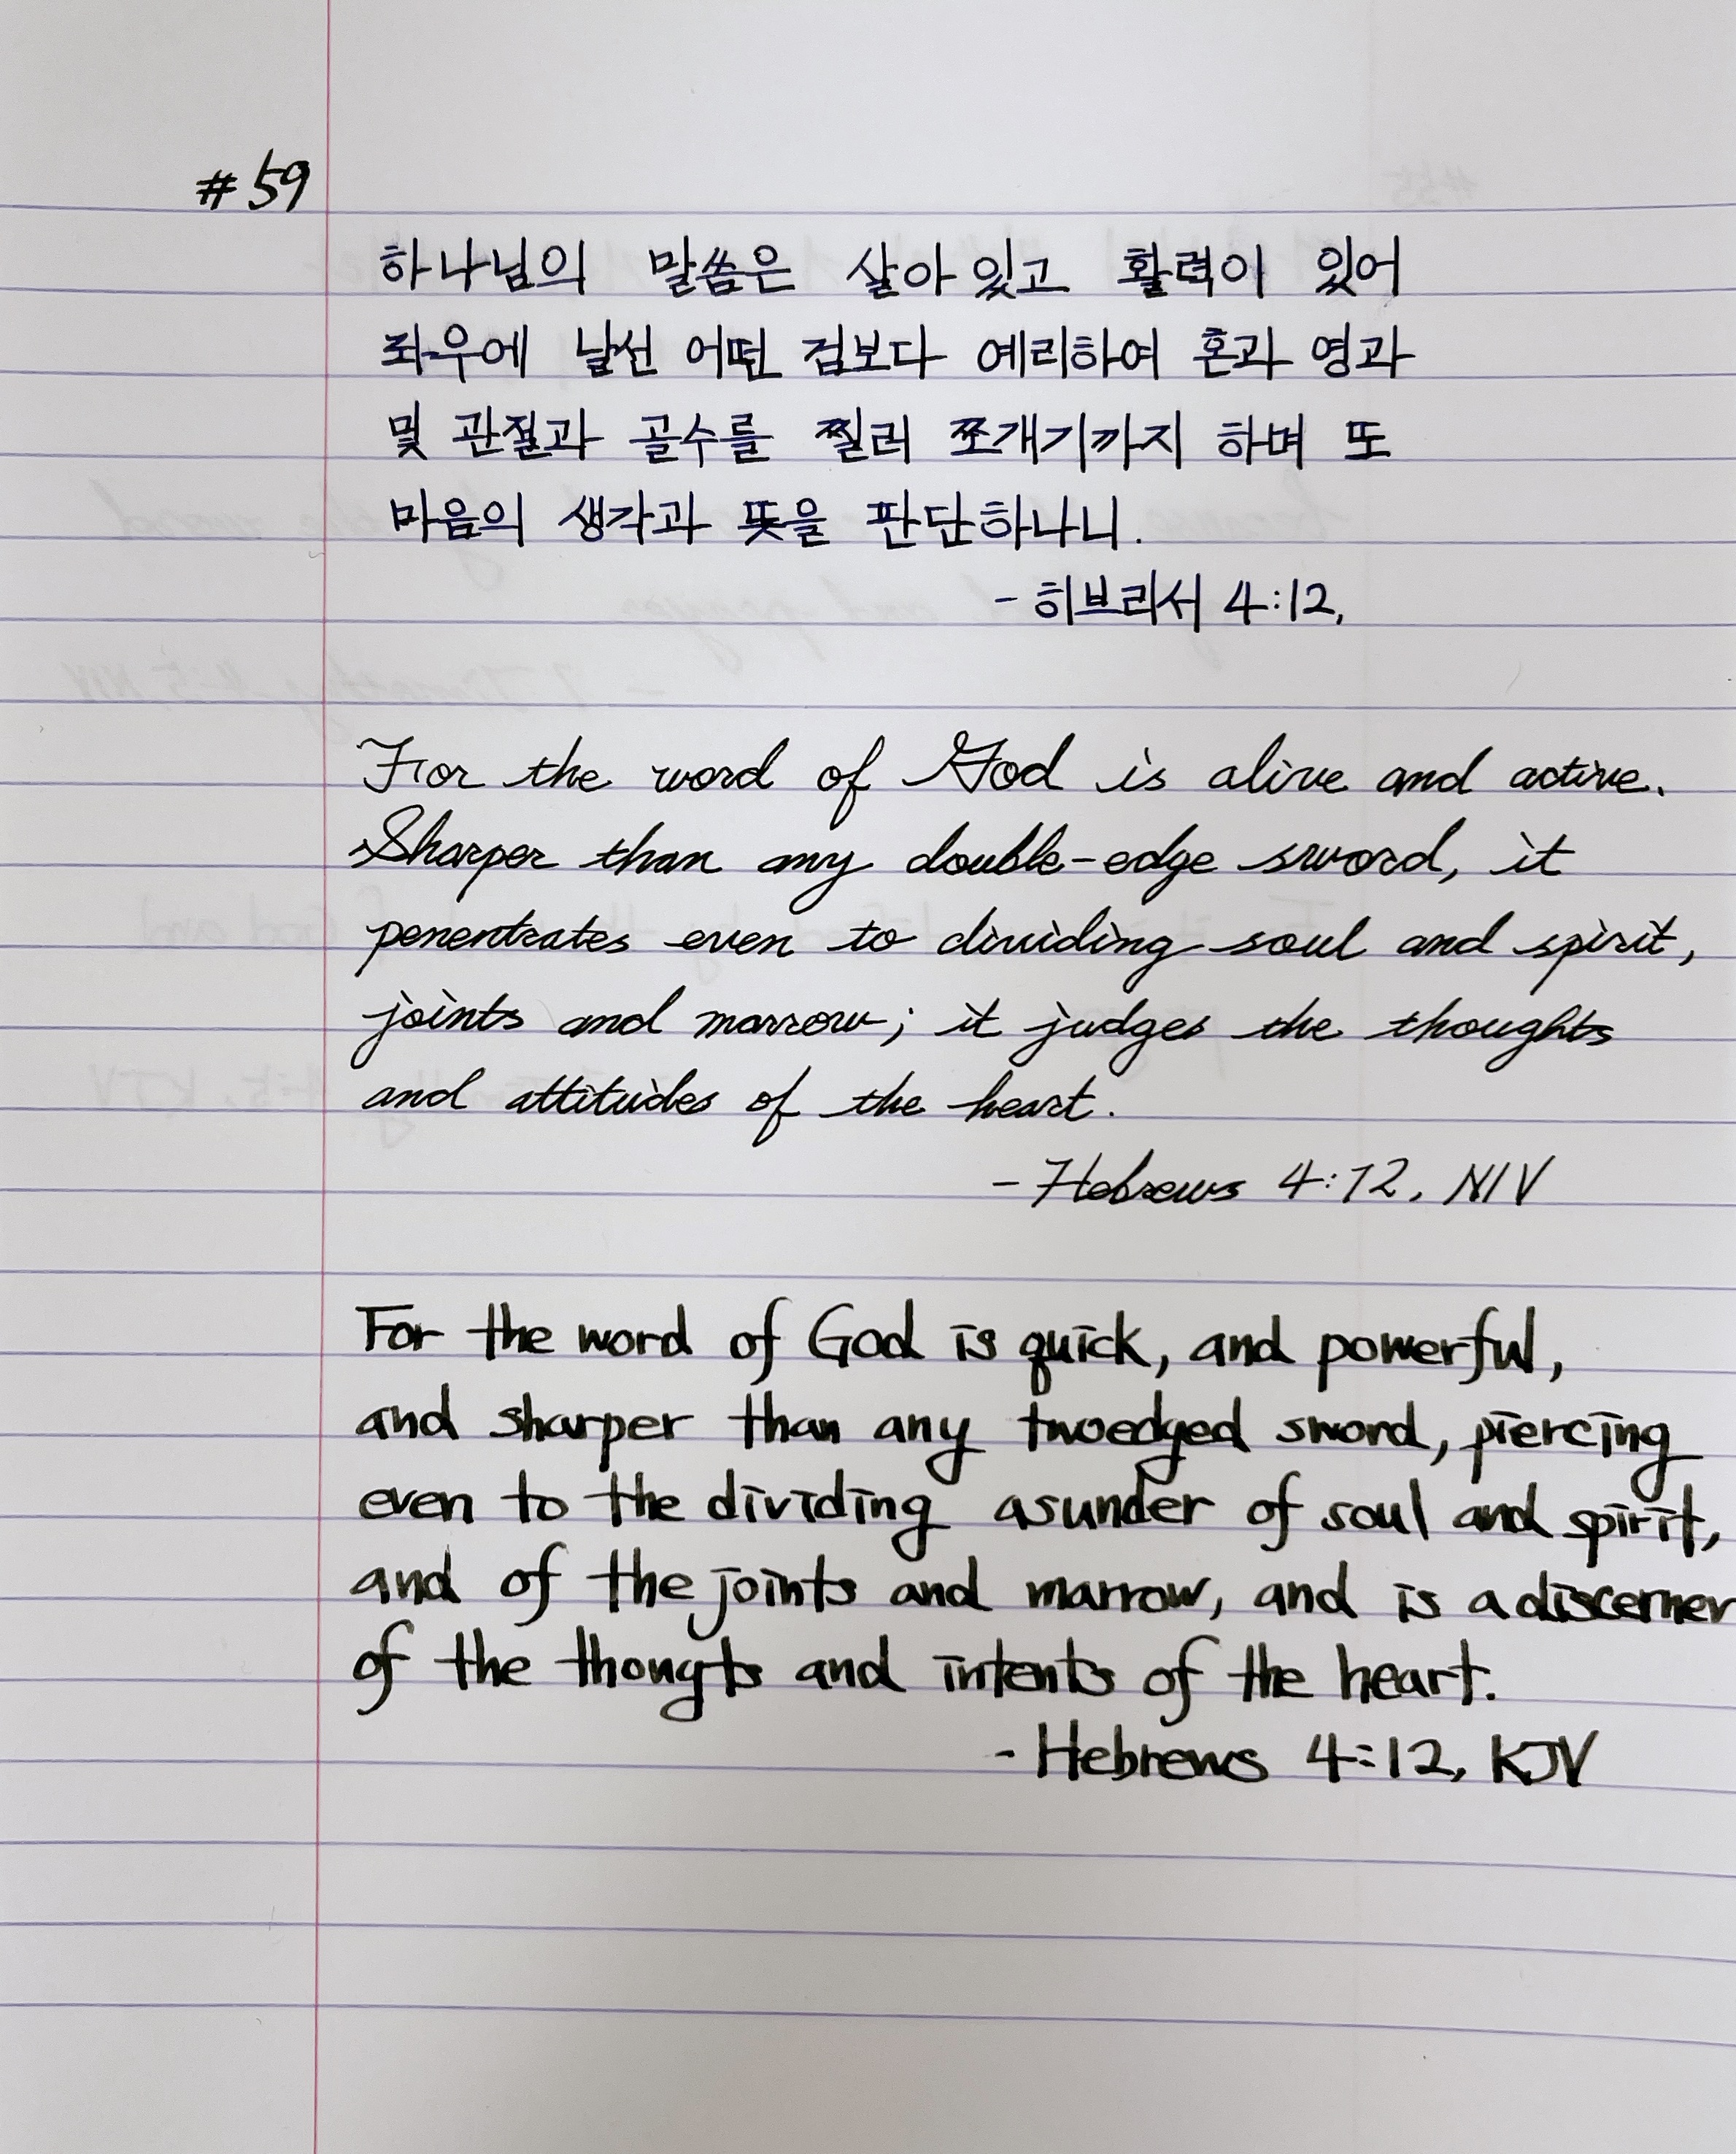 #59
하나님의 말씀은 살아 있고 활력이 있어
좌우에 날선 어떤 검보다 예리하여 혼과 영과
및 관절과 골수를 찔러 쪼개기까지 하며 또
마음의 생각과 뜻을 판단하나니.
- 히브리서 4:12.
For the word of God is alive and active.
Sharper than any double-edge sword, it
penentrates even to dividing soul and spirit,
joints and marrow; it judges the thoughts
and attitudes of the heart.
- Hebrews 4:12, NIV
For the word of God is quick, and powerful,
and sharper than any twoedged sword, piercing
even to the dividing asunder of soul and spirit,
and of the joints and marrow, and is a discerner
of the thougts and intents of the heart.
- Hebrews 4:12, KJV